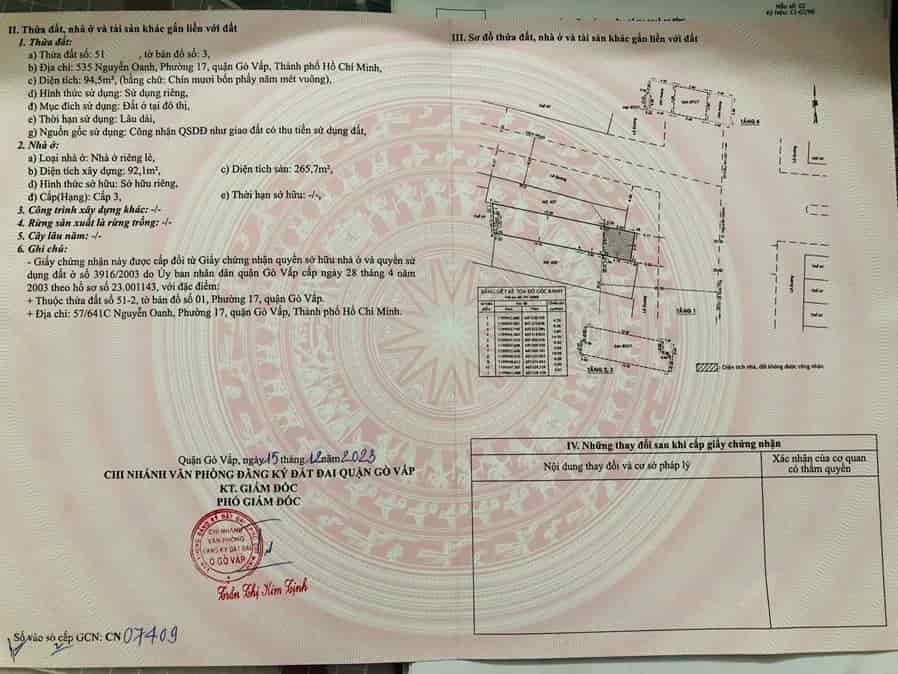 Mẫu số: 02
II. Thửa đất, nhà ở và tài sản khác gắn liền với đất
1. Thửa đất:
a) Thửa đất số: 51 , tờ bản đồ số: 3,
b) Địa chỉ: 535 Nguyễn Oanh, Phường 17, quận Gò Vấp, Thành phố Hồ Chí Minh,
c) Diện tích: 94,5m², (bằng chữ: Chín mươi bốn phẩy năm mét vuông),
d) Hình thức sử dụng: Sử dụng riêng,
đ) Mục đích sử dụng: Đất ở tại đô thị,
e) Thời hạn sử dụng: Lâu dài,
g) Nguồn gốc sử dụng: Công nhận QSDĐ như giao đất có thu tiền sử dụng đất,
2. Nhà ở:
a) Loại nhà ở: Nhà ở riêng lẻ,
b) Diện tích xây dựng: 92,1m², c) Diện tích sàn: 265,7m²,
d) Hình thức sở hữu: Sở hữu riêng,
đ) Cấp(Hạng): Cấp 3, e) Thời hạn sở hữu: -/-,
3. Công trình xây dựng khác: -/-
4. Rừng sản xuất là rừng trồng: -/-
5. Cây lâu năm: -/-
6. Ghi chú:
- Giấy chứng nhận này được cấp đổi từ Giấy chứng nhận quyền sở hữu nhà ở và quyền sử
dụng đất ở số 3916/2003 do Ủy ban nhân dân quận Gò Vấp cấp ngày 28 tháng 4 năm
2003 theo hồ sơ số 23.001143, với đặc điểm:
+ Thuộc thửa đất số 51-2, tờ bản đồ số 01, Phường 17, quận Gò Vấp.
+ Địa chỉ: 57/641C Nguyễn Oanh, Phường 17, quận Gò Vấp, Thành phố Hồ Chí Minh.
Quận Gò Vấp, ngày 15 tháng 12 năm 2023
CHI NHÁNH VĂN PHÒNG ĐĂNG KÝ ĐẤT ĐAI QUẬN GÒ VẤP
KT. GIÁM ĐỐC
PHÓ GIÁM ĐỐC
CHI NHÁNH
VĂN PHÒNG
ĐĂNG KÝ ĐẤT ĐAI
Q GÒ VẤP
Trần Thị Kim Định
Số vào sổ cấp GCN: CN 07409
III. Sơ đồ thửa đất, nhà ở và tài sản khác gắn liền với đất
TẦNG 4
TẦNG 1
TẦNG 2, 3
BẢNG LIỆT KÊ TỌA ĐỘ GÓC RANH
: Diện tích nhà, đất không được công nhận
IV. Những thay đổi sau khi cấp giấy chứng nhận
Nội dung thay đổi và cơ sở pháp lý
Xác nhận của cơ quan
có thẩm quyền